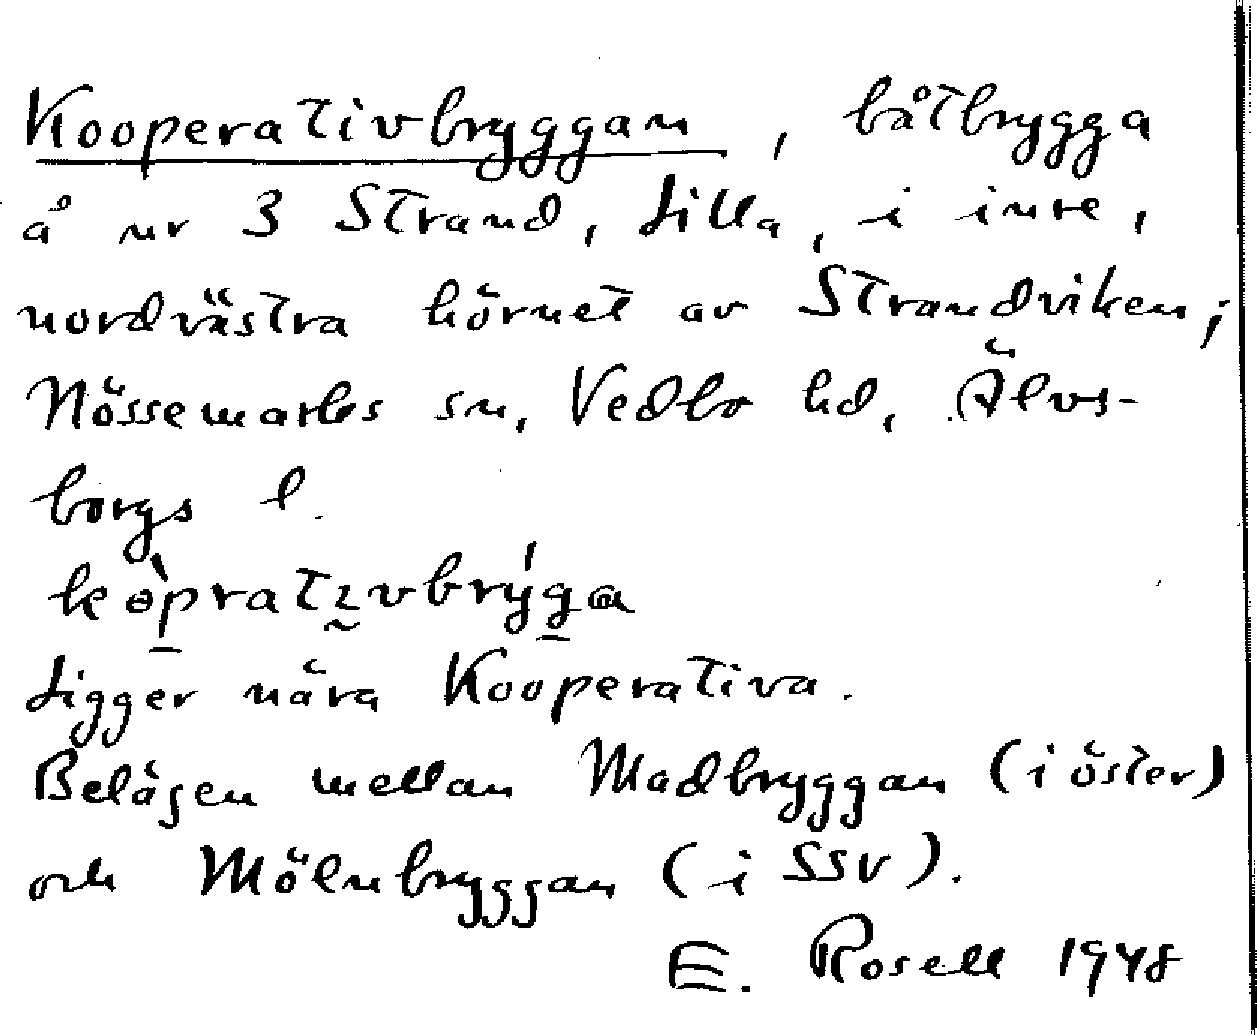 Kooperativbryggan, båtbrygga
å nr 3 Strand, Lilla, i inre,
nordvästra hörnet av Strandviken;
Nössemarks sn, Vedbo hd, Älvs-
borgs l.
Ligger nära Kooperativa.
Belägen mellan Madbryggan (i öster)
och Mölnbryggan (i SSV).
E. Rosell 1948